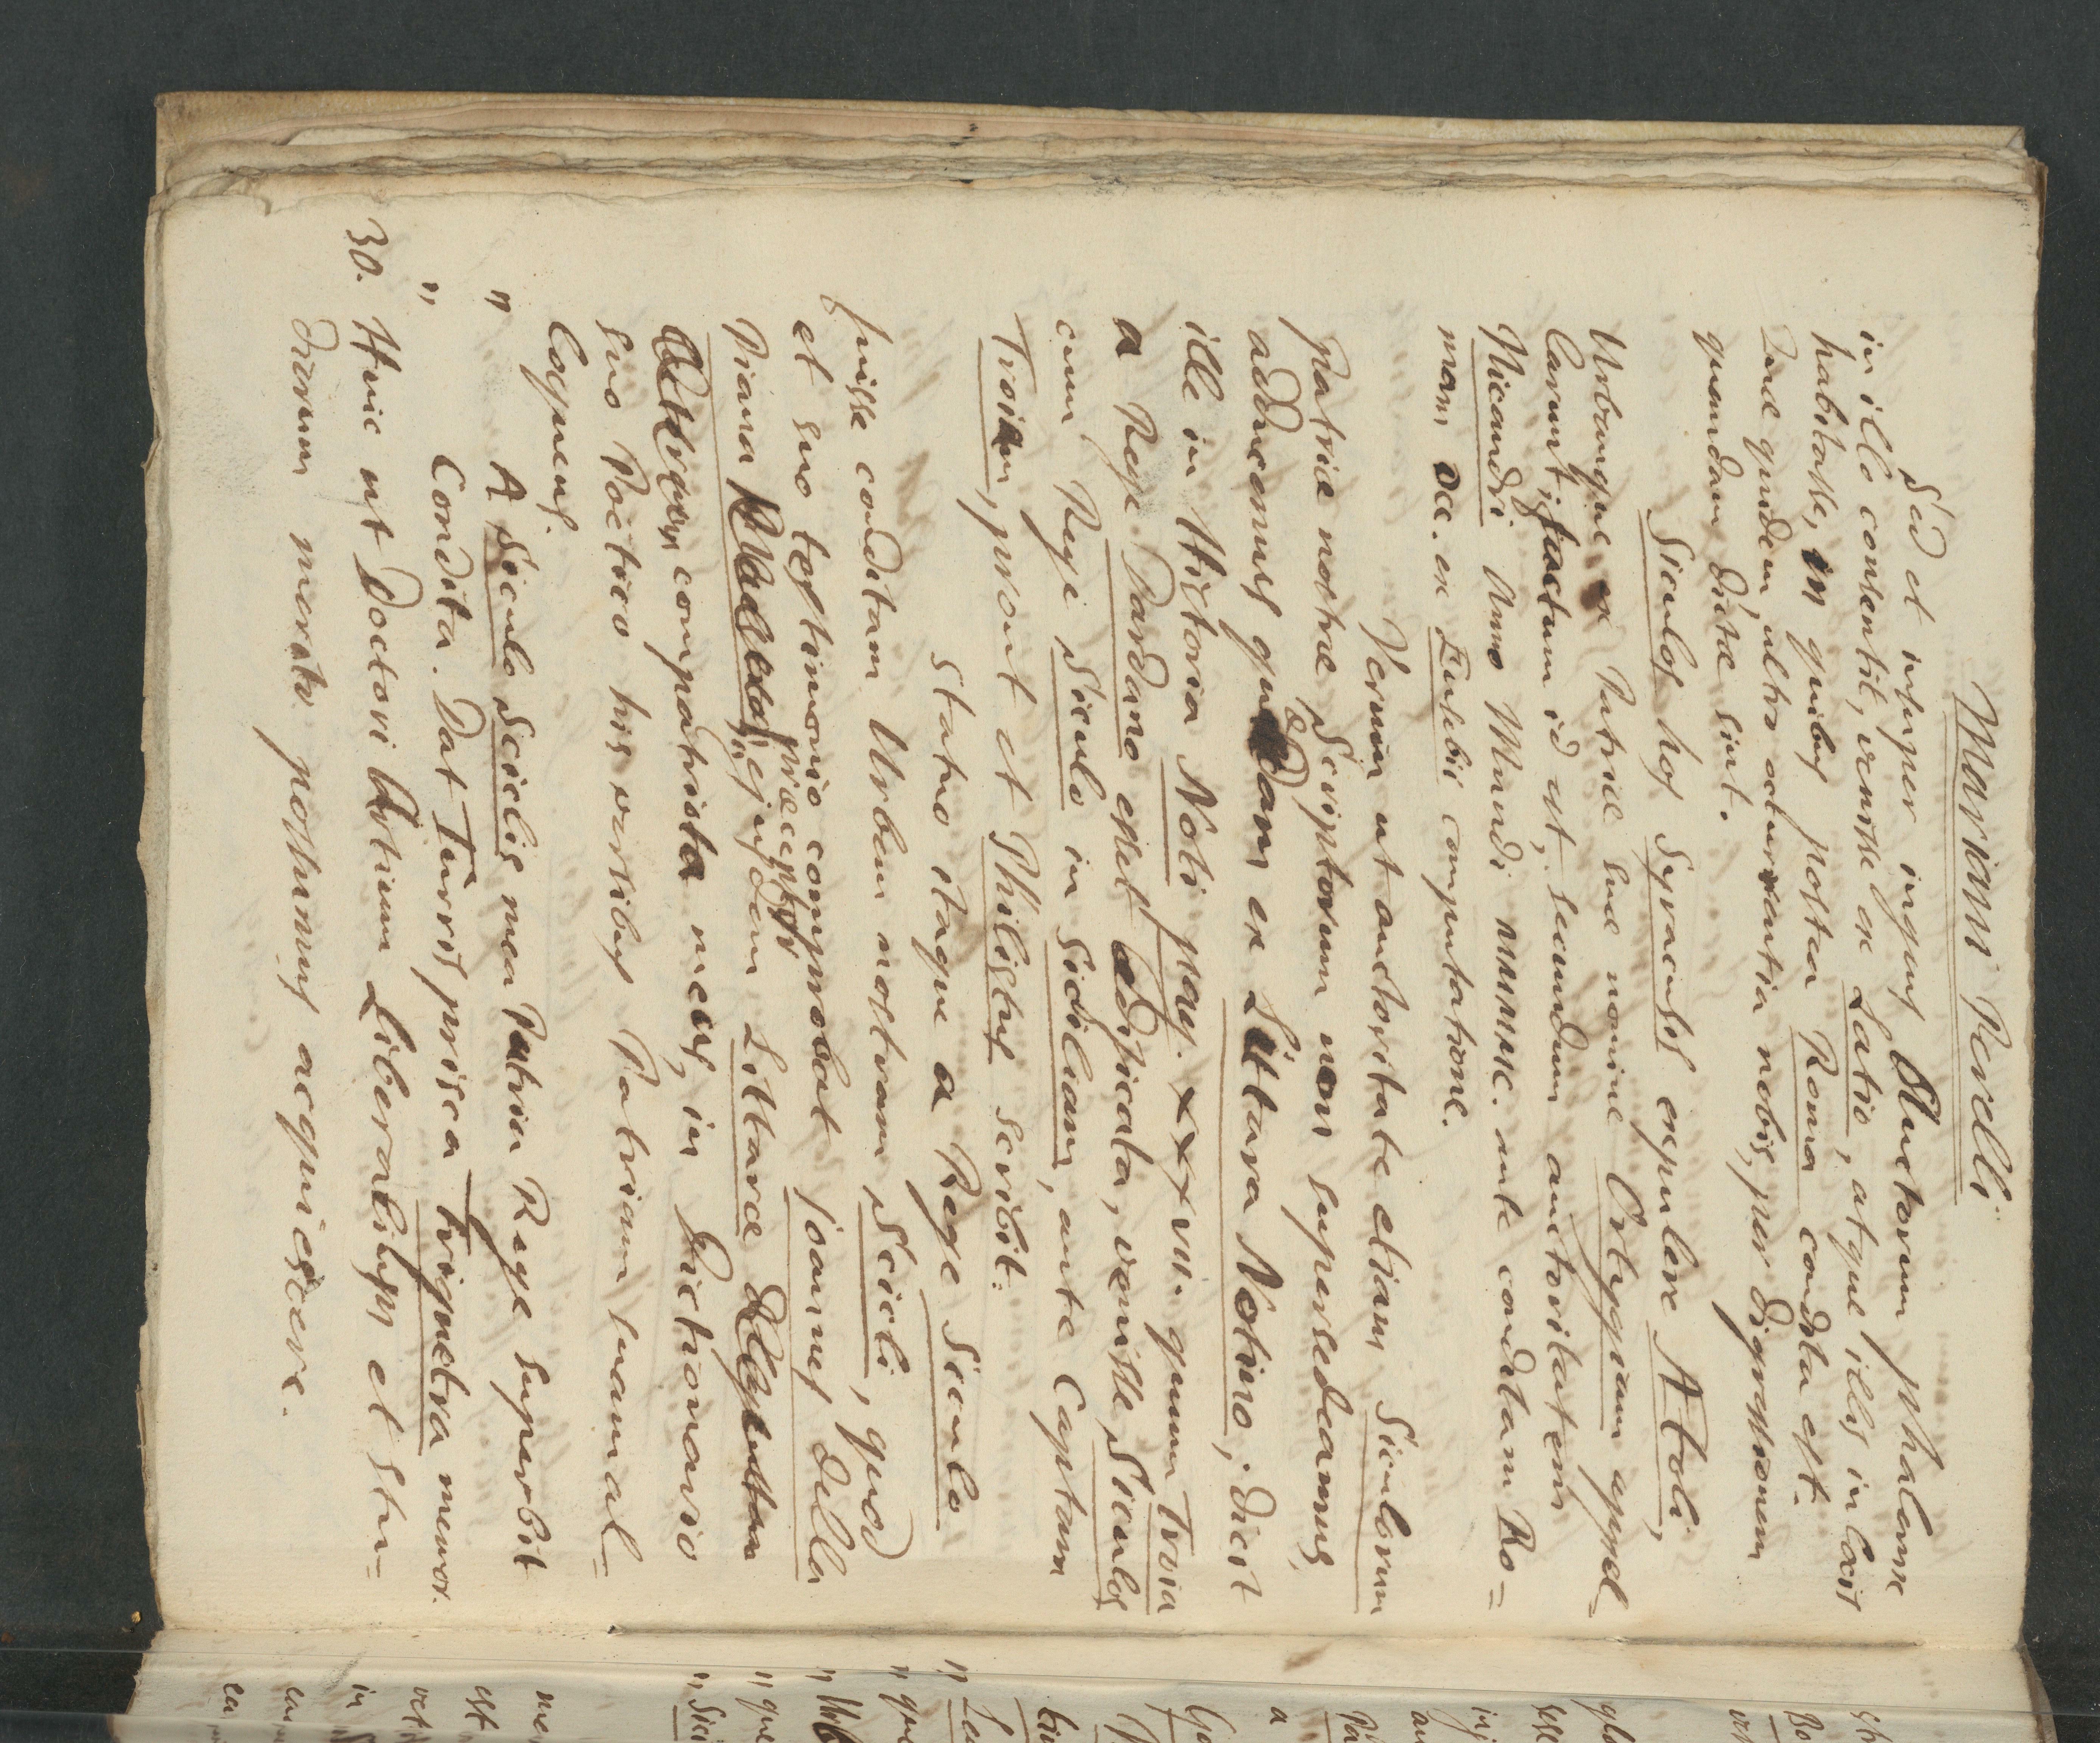 Mariani Perelli
Sed et insuper ingens Auctorum phalanx
in illo consentit, venisse ex Latio, atque illis in locis
habitasse, in quibus postea Roma condita est.
quidem, ultro acturientia nobis, per digressionem
quandam dicta sint.
Siculos hos Syracusis expulere Ætoli,
Urbanque ex Patriæ suæ nomine Ortygiam appel-
larunt; factum id est, secundum auctoritatem
Nicandri Anno Mundi ante conditam Ro-
mam ex Eusebii computatione.
Verum ut auctoritate etiam Siculorum
Patriæ nostræ Scriptorum non supersedeamus,
adducemus quædam ex Littara Notino; dicit
ille in Historia Noti pag. XXXVII. quum Troia
a Rege Dardano esset ædificata, venisse Siculos
cum Rege Siculo in Siciliam, ante Captam
Troiam, prout et Philistus scribit.
Statuo itaque a Rege Siculo
fuisse conditam Urbem nostram Scicli, quod
et suo testimonio comprobat Joannes della
præceptor
Diana ejusdem Littaræ
compatriota meus, in Dictionario
suo Poetico his versibus Patriam suam al-
loquens.
" A Siculo Sciclis mea Patria Rege superbit
" Condita. Dat Turris prisca Triquetra memor.
30. Huic ut Doctori Artium Liberalium et stu-
diorum merito possumus acquiescere.